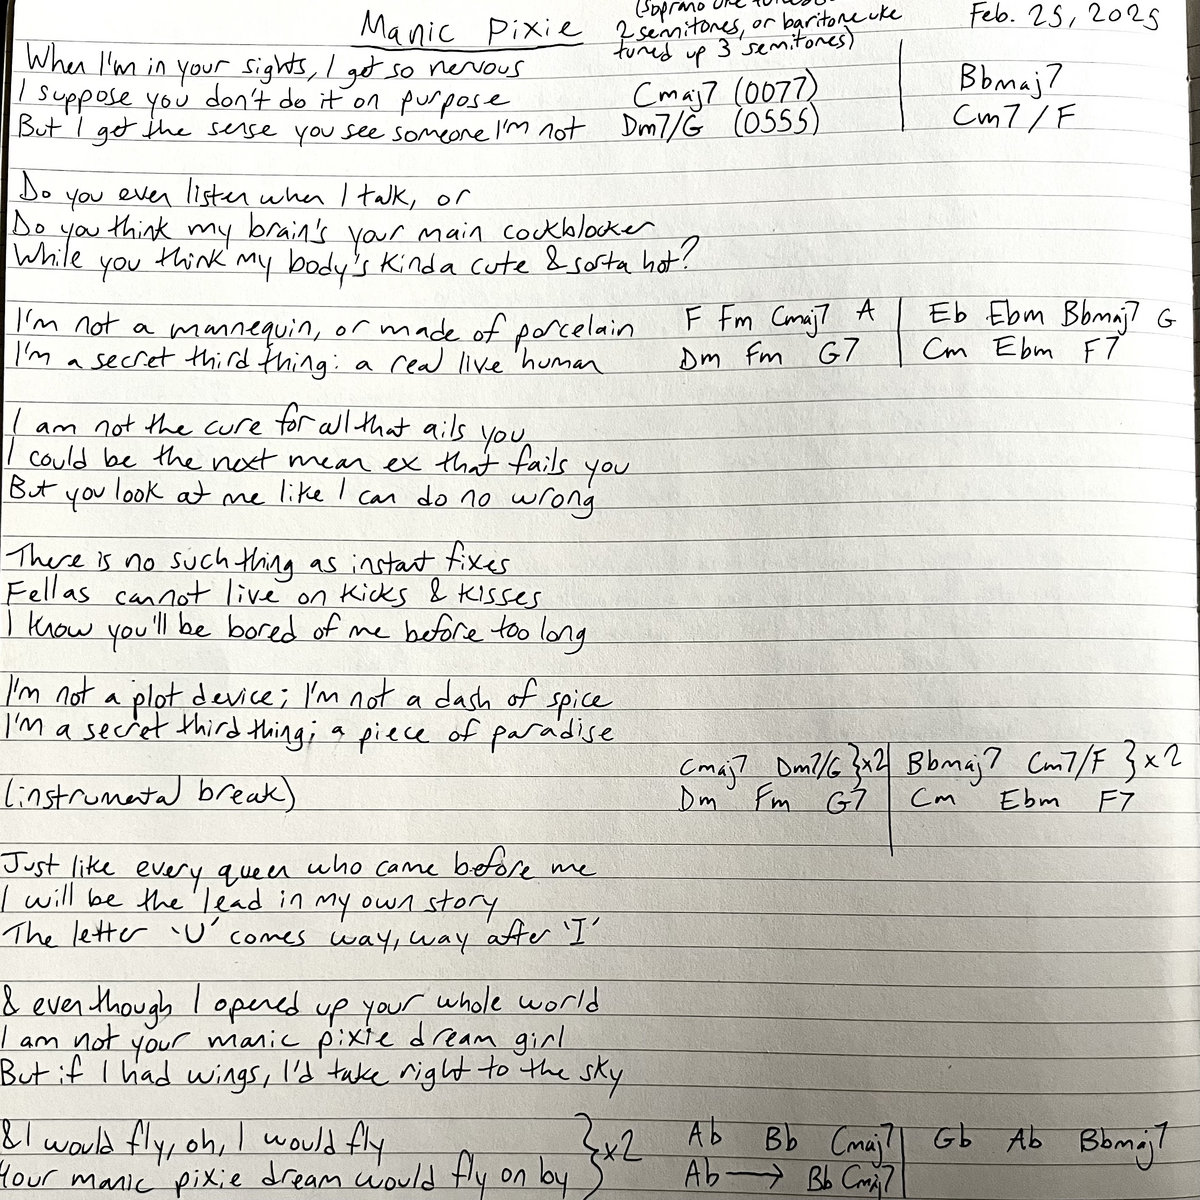 Manic Pixie
(Soprano uke tuned
2 semitones, or baritone uke
tuned up 3 semitones)
Feb. 25, 2025
When I'm in your sights, I get so nervous
I suppose you don't do it on purpose Cmaj7 (0077) Bbmaj7
But I get the sense you see someone I'm not Dm7/G (0555) Cm7/F
Do you even listen when I talk, or
Do you think my brain's your main cockblocker
While you think my body's kinda cute & sorta hot?
I'm not a mannequin, or made of porcelain F Fm Cmaj7 A Eb Ebm Bbmaj7 G
I'm a secret third thing: a real live human Dm Fm G7 Cm Ebm F7
I am not the cure for all that ails you
I could be the next mean ex that fails you
But you look at me like I can do no wrong
There is no such thing as instant fixes
Fellas cannot live on kicks & kisses
I know you'll be bored of me before too long
I'm not a plot device; I'm not a dash of spice
I'm a secret third thing; a piece of paradise
Cmaj7 Dm7/G }x2 Bbmaj7 Cm7/F }x2
(instrumental break) Dm Fm G7 Cm Ebm F7
Just like every queen who came before me
I will be the lead in my own story
The letter 'U' comes way, way after 'I'
& even though I opened up your whole world
I am not your manic pixie dream girl
But if I had wings, I'd take right to the sky
& I would fly, oh, I would fly }x2 Ab Bb Cmaj7 Gb Ab Bbmaj7
Your manic pixie dream would fly on by Ab → Bb Cmaj7